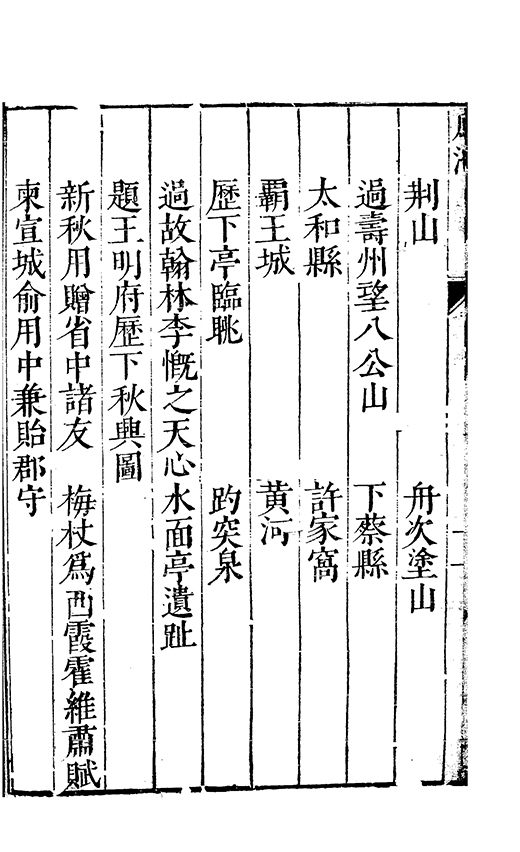 荆山　舟次塗山
過壽州望八公山　下蔡縣
太和縣　許家窩
覇王城　黄河
歷下亭臨眺　趵突泉
過故翰林李慨之天心水面亭遺趾
題王明府歷下秋興圖
新秋用贈省中諸友　梅杖爲西霞霍維肅賦
柬宣城俞用中兼貽郡守